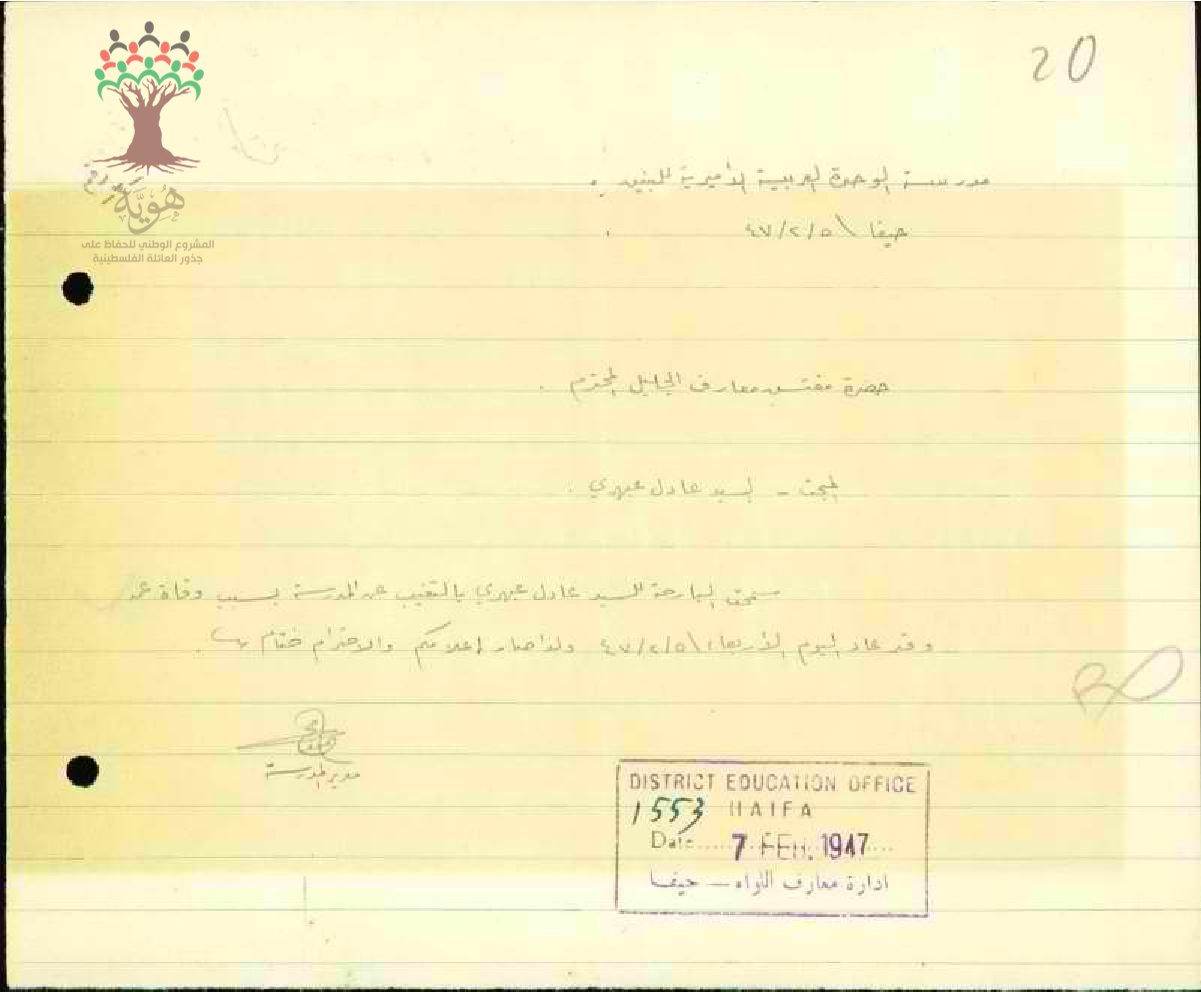 20
هُوِيَّة
المشروع الوطني للحفاظ على
جذور العائلة الفلسطينية
مدرسة الوحدة العربية الأميرية للبنين .
حيفا \ ٤٧/٢/٥
حضرة مفتش معارف الجليل المحترم .
المبحث - السيد عادل
البارحة للسيد عادل بالتغيب عن المدرسة بسبب وفاة عمه
وقد عاد اليوم الأربعاء \ ٤٧/٢/٥ ولذا صار اعلامكم والاحترام ختام
مدير المدرسة
DISTRICT EDUCATION OFFICE
1553 HAIFA
Date..... 7 FEB. 1947....
ادارة معارف اللواء — حيفا